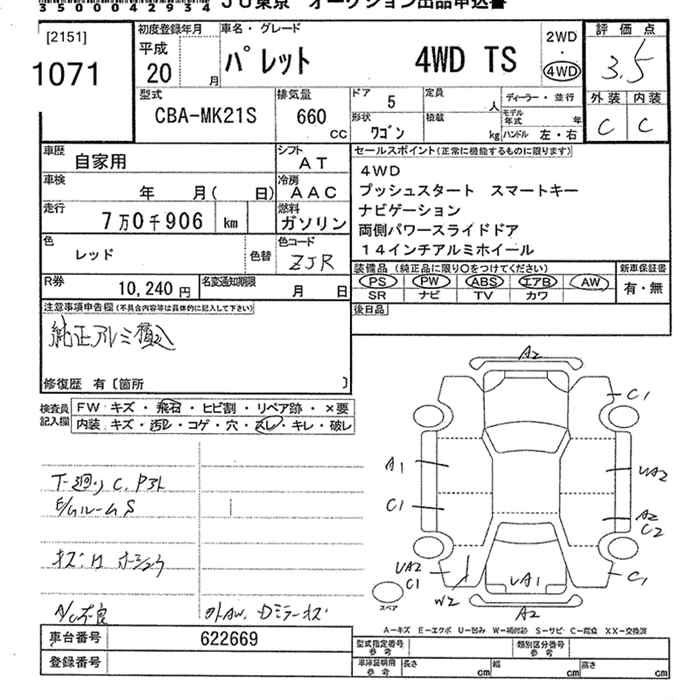 35000042934
JU東京 オークション出品申込書
[2151]
1071
初度登録年月
平成
20 月
車名・グレード
パレット 4WD TS
2WD
・
4WD
評価点
3.5
型式
CBA-MK21S
排気量
660
CC
ドア
5
定員
人
形状
ワゴン
積載
kg
ディーラー・並行
モデル年式 年
ハンドル 左・右
外装 内装
C C
車歴
自家用
シフト
AT
車検
年 月( 日)
冷房
AAC
走行
7万0千906 km
燃料
ガソリン
色
レッド
色替
色コード
ZJR
R券
10,240 円
名変通知期限
月 日
セールスポイント(正常に機能するものに限ります)
4WD
プッシュスタート スマートキー
ナビゲーション
両側パワースライドドア
14インチアルミホイール
装備品 (純正品に限り○をつけてください)
PS PW ABS エアB AW
SR ナビ TV カワ
新車保証書
有・無
後日品
注意事項申告欄(不具合内容等は具体的に記入して下さい)
純正アルミ積込
修復歴 有〔箇所 〕
検査員
記入欄
FW キズ・飛石・ヒビ割・リペア跡・×要
内装 キズ・汚レ・コゲ・穴・スレ・キレ・破レ
下廻り C. P3ト
E/ルームS
A/C不良
A2
C1
A1
UA2
C1
A2
C2
UA2
C1
W2
UA1
C1
A2
スペア
A-キズ E-エクボ U-凹み W-補修跡 S-サビ C-腐食 XX-交換済
車台番号 622669
登録番号
型式指定番号
参考
類別区分番号
参考
車庫証明用
参考
長さ cm 幅 cm 高さ cm